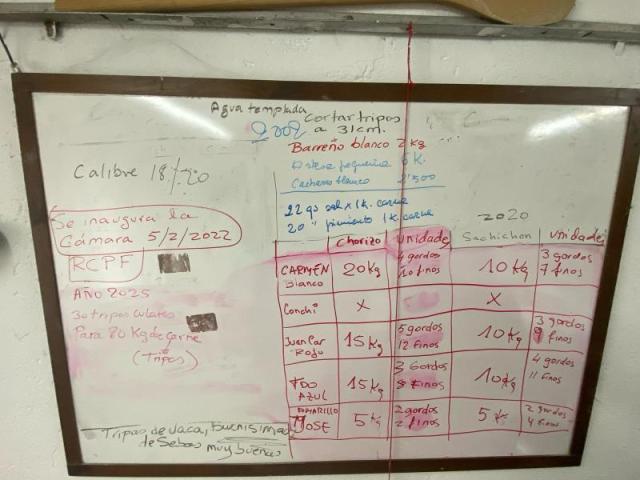 Agua templada
Cortar tripos
a 31cm.
Barreño blanco 2 kg
Calibre 18/20
Cacharro blanco 2'500
22 gs sal x 1k. carne
20 " pimiento 1k. carne
Se inaugura la
Cámara 5/2/2022
RCPF
AÑO 2025
30 tripos culares
Para 80 Kg de carne
(Tripos)
2020
Chorizo Unidades Sachichon Unidades
CARMEN blanco 20 Kg 4 gordos 10 finos 10 Kg 3 gordos 7 finos
Conchi X X
Juan Car Rojo 15 Kg 5 gordos 12 finos 10 Kg 3 gordos 9 finos
TDO AZUL 15 Kg 3 Gordos 8 finos 10 Kg 4 gordos 11 finos
AMARILLO JOSE 5 Kg 2 gordos 2 finos 5 K 2 gordos 4 finos
Tripas de vaca, buenisimas
de Sebas muy buenas